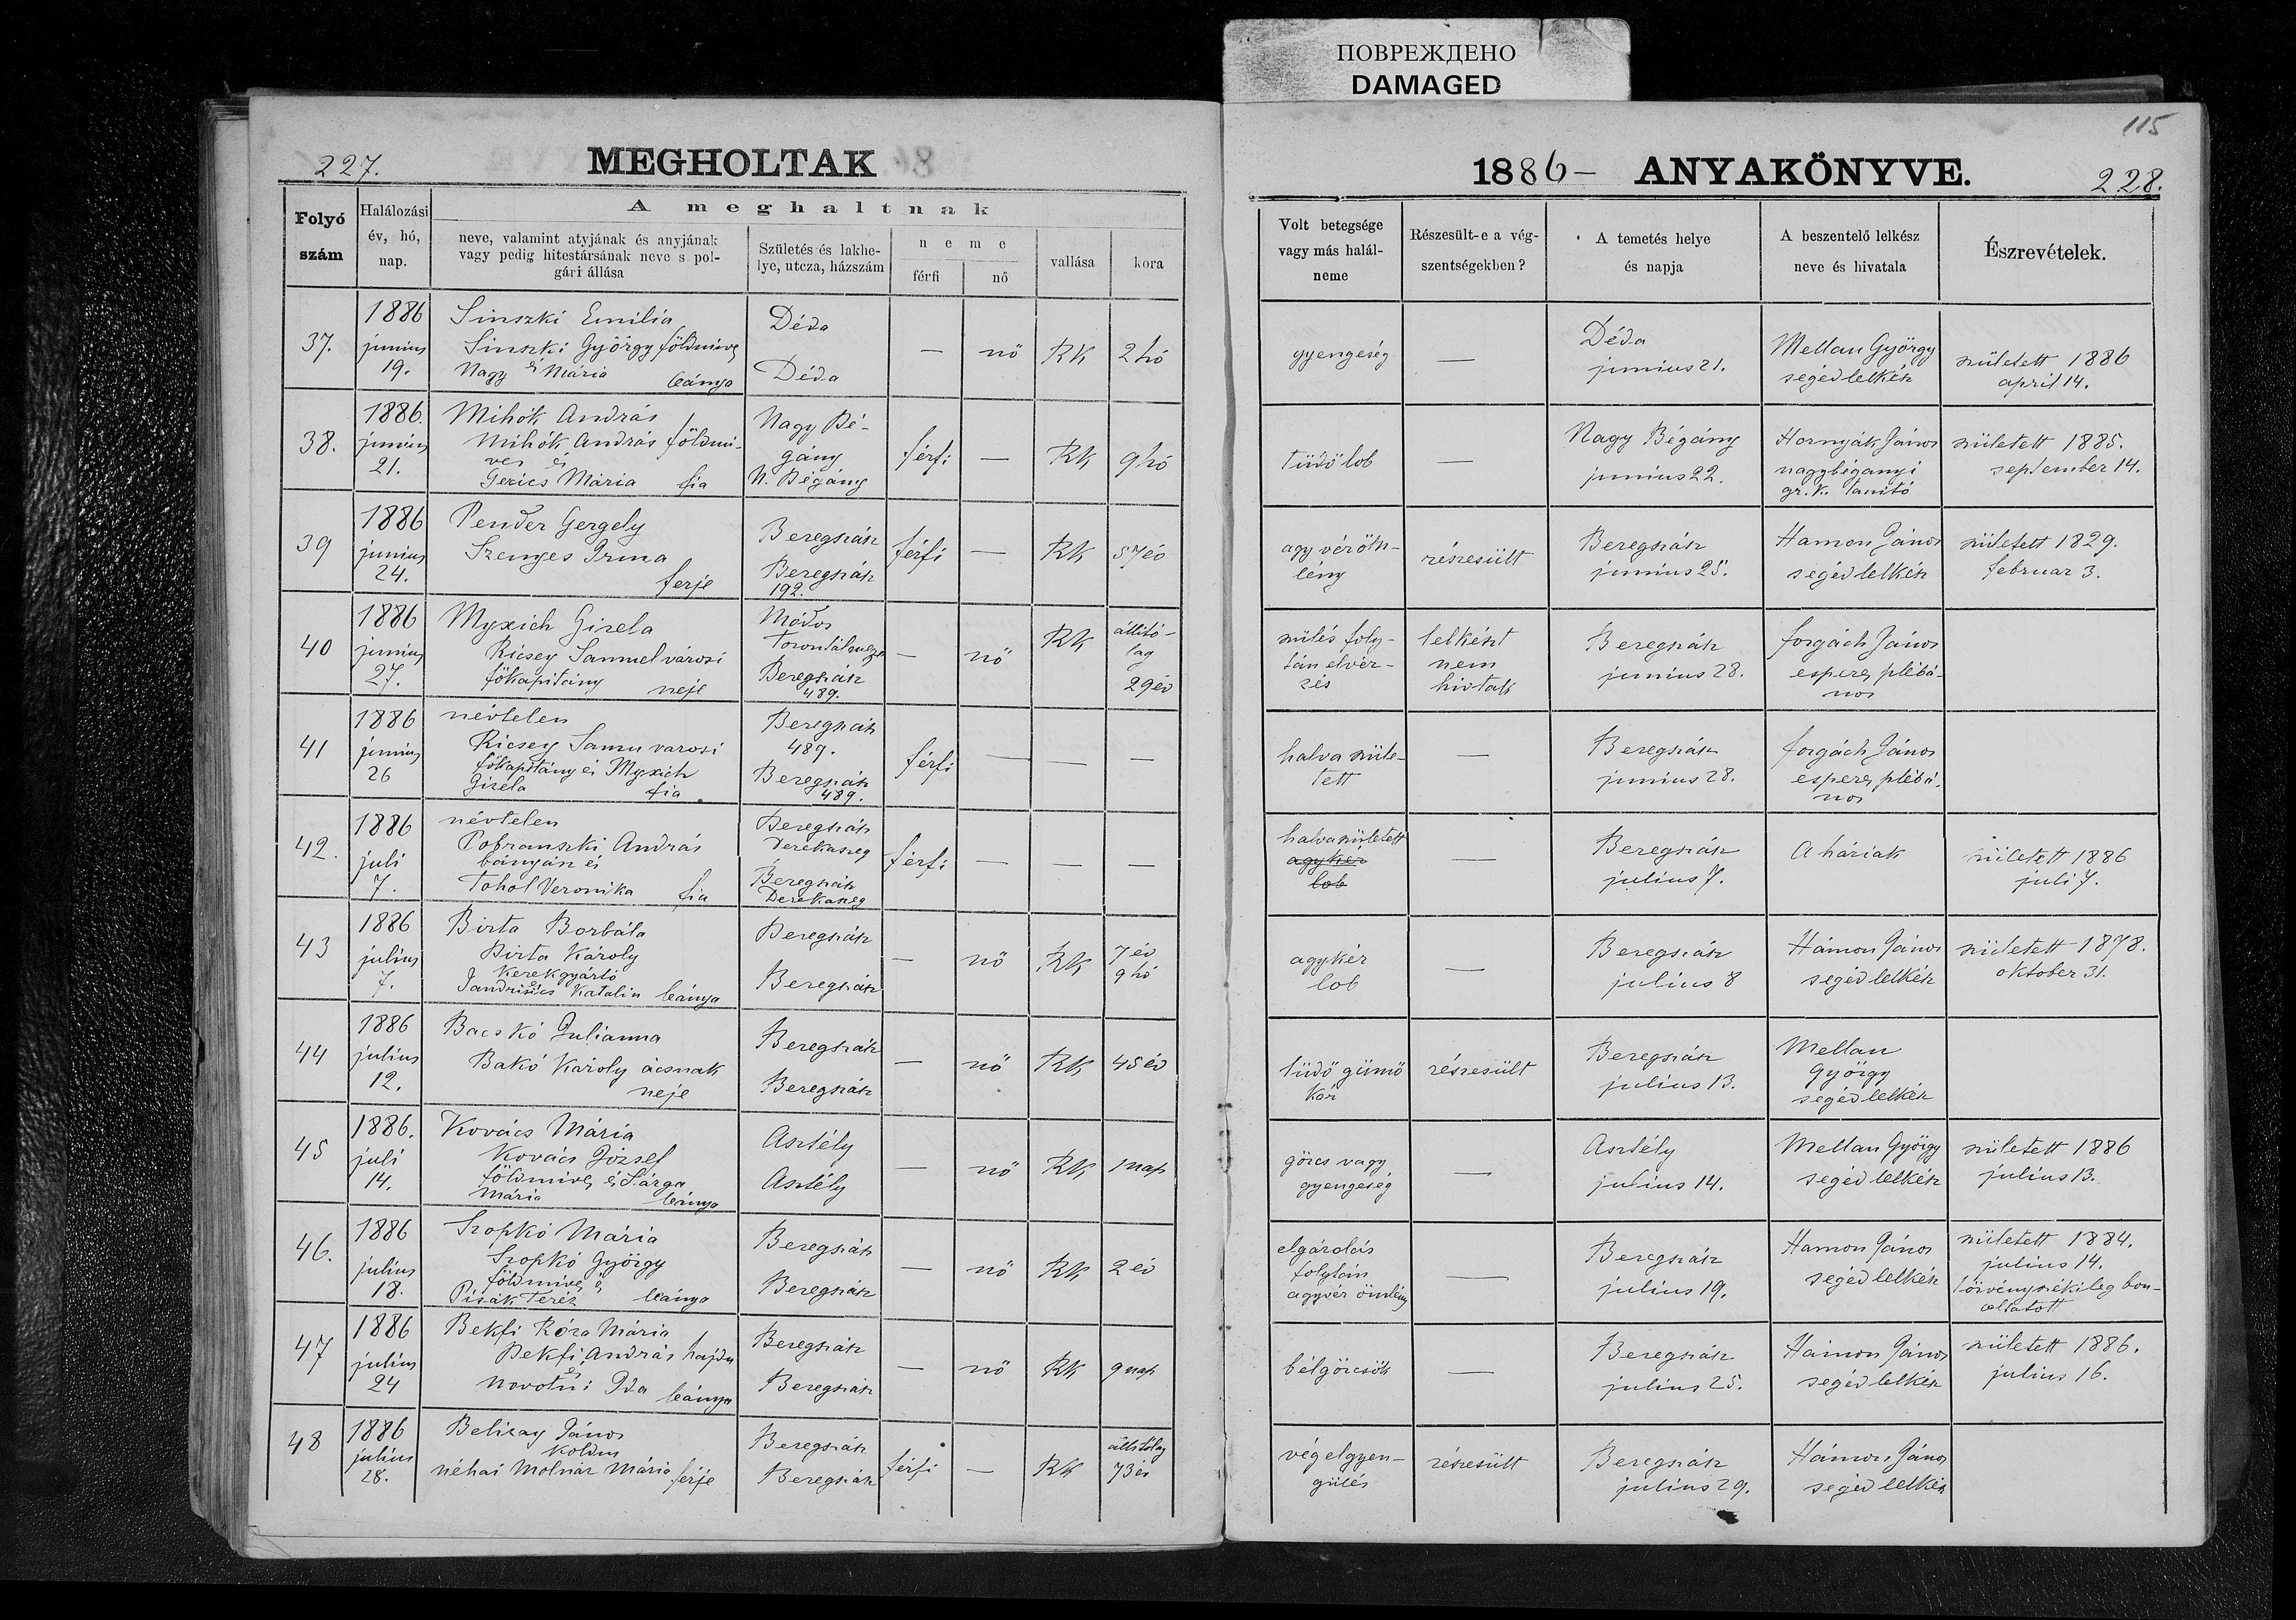 ПОВРЕЖДЕНО
DAMAGED
115
227.
MEGHOLTAK
1886 – ANYAKÖNYVE.
228.
Folyó
szám
Halálozási
év, hó,
nap.
A meghaltnak
neve, valamint atyjának és anyjának
vagy pedig hitestársának neve s pol-
gári állása
Születés és lakhe-
lye, utcza, házszám
neme
férfi
nő
vallása
kora
Volt betegsége
vagy más halál-
neme
Részesült-e a vég-
szentségekben?
A temetés helye
és napja
A beszentelő lelkész
neve és hivatala
Észrevételek.
37.
1886
junius
19.
Sinszki Emilia
Sinszki György földmives
Nagy és Mária leánya
Déda
Déda
—
nő
RK
2 hó
gyengeség
—
Déda
junius 21.
Mellau György
segédlelkész
született 1886
april 14.
38.
1886.
junius
21.
Mihók András
Mihók András földmi-
ves és
Gerics Mária fia
Nagy Bé-
gány
N. Bégány
férfi
—
RK
9 hó
tüdőlob
—
Nagy Bégány
junius 22.
Hornyák János
nagybéganyi
gr. k. tanító
született 1885.
september 14.
39
1886
junius
24.
Pender Gergely
Szenyes Irma
ferje
Beregszász
Beregszász
192.
férfi
—
RK
57 év
agy véröm-
lény
részesült
Beregszász
junius 25.
Hamon János
segédlelkész
született 1829.
februar 3.
40
1886
junius
27.
Myxich Gizela
Ricsey Samuel városi
főkapitány neje
Módos
Torontálmegye
Beregszász
489.
—
nő
RK
állitó-
lag
29 év
szülés foly-
tán elvér-
zés
lelkészt
nem
hivtak
Beregszász
junius 28.
forgách János
esperes plébá-
nos
41
1886
junius
26
névtelen
Ricsey Samu varosi
főkapitány és Myxich
Gizela fia.
Beregszász
489.
Beregszász
489.
férfi
—
—
—
halva szüle-
tett
—
Beregszász
junius 28.
forgách János
esperes plébá-
nos
42.
1886
juli
7.
névtelen
Pobranszki András
bányász és
Tohol Veronika fia
Beregszász
Derekaszeg
Beregszász
Derekaszeg
férfi
—
—
—
halvaszületett
agyker
lob
—
Beregszász
július 7.
A háziak
született 1886
juli 7.
43
1886
július
7.
Birta Borbála
Birta Károly
kerekgyártó
és
Jandrisics Katalin leánya
Beregszász
Beregszász
—
nő
RK
7 év
9 hó
agykér
lob
—
Beregszász
július 8
Hámon János
segédlelkész
született 1878.
oktober 31.
44
1886
július
12.
Bacskó Julianna
Bakó Károly ácsnak
neje
Beregszász
Beregszász
—
nő
RK
45 év
tüdő gümő
kór
részesült
Beregszász
július 13.
Mellau
György
segédlelkész
45
1886.
juli
14.
Kovács Mária
Kovács József
földmives és Sárga
Mária leánya
Asztély
Asztély
—
nő
RK
1 nap
görcs vagy
gyengeség
—
Asztély
július 14.
Mellau György
segédlelkész
született 1886
július 13.
46.
1886
július
18.
Szopkó Mária
Szopkó György
földmives és
Pisák Teréz leánya
Beregszász
Beregszász
—
nő
RK
2 év
elgázolás
folytán
agyvér ömlény
—
Beregszász
július 19.
Hamon János
segédlelkész
született 1884.
július 14.
törvényszékileg bon-
czoltatott
47
1886
július
24
Bekfi Róza Mária
Bekfi András hajdu
és
Novotni Ida leánya
Beregszász
Beregszász
—
nő
RK
9 nap
bélgörcsök
—
Beregszász
július 25.
Hámon János
segédlelkész
született 1886.
július 16.
48
1886
július
28.
Beliczay János
koldus
néhai Molnár Mária férje
Beregszász
Beregszász
férfi
—
RK
állitólag
73 év
végelgyen-
gülés
részesült
Beregszász
július 29.
Hámon János
segédlelkész